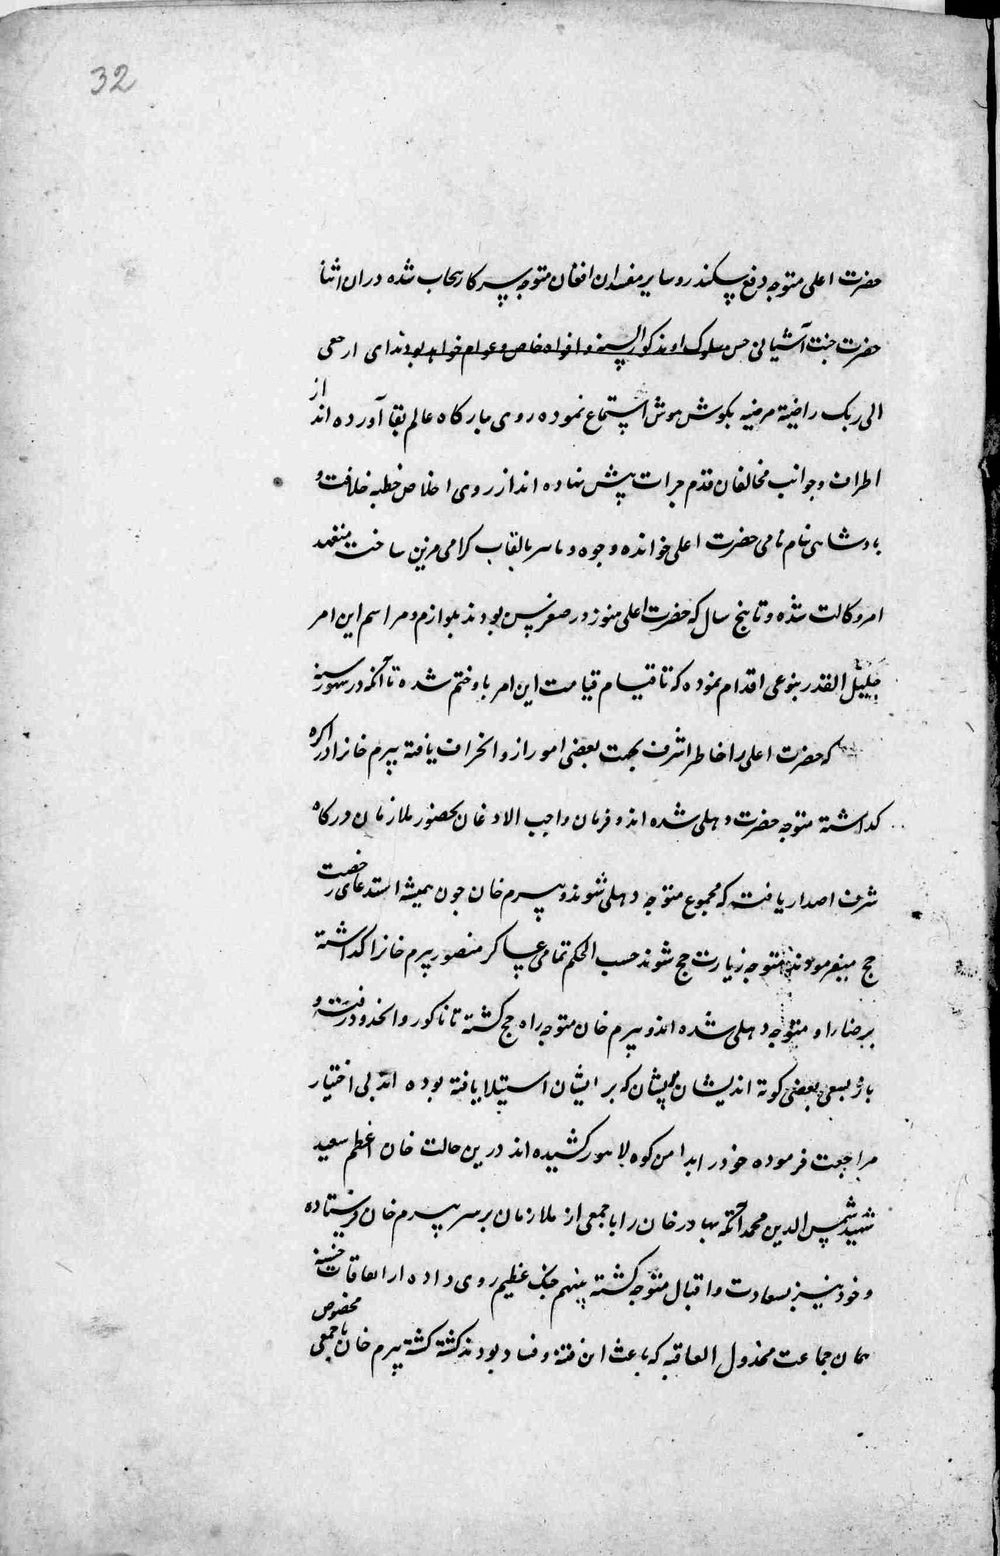 32
حضرت اعلی متوجه دفع سکندر و سایر مفسدان افغان متوجه سرکار پنجاب شده دران اثنا
حضرت جنت آشیانی حسن سلوک او مذکور السنه و افواه خاص و عوام خواهد بود ندای ارجعی
الی ربک راضیة مرضیه بگوش هوش استماع نموده روی ببارگاه عالم بقا آورده اند از
اطراف و جوانب مخالفان قدم جرات پیش نهاده اند از روی اخلاص خطبه خلافت و
بادشاهی بنام نامی حضرت اعلی خوانده وجوه دنانیر بالقاب کرامی مزین ساخت متعهد
امر وکالت شده و تا پنج سال که حضرت اعلی هنوز در صغر سن بودند بلوازم و مراسم این امر
جلیل القدر بنوعی اقدام نموده که تا قیام قیامت این امر باو ختم شده تا آنکه در شهور سنه
که حضرت اعلی را خاطر اشرف بجهت بعضی امور ازو انحراف یافته بیرم خانرا در اکره
کداشته متوجه حضرت دهلی شده اند و فرمان واجب الاذعان بحضور ملازمان درکاه
شرف اصدار یافت که مجموع متوجه دهلی شوند و بیرم خان چون همیشه استدعای رخصت
حج میفرمودند متوجه زیارت حج شوند حسب الحکم تمامی عساکر منصور بیرم خانرا کداشته
برضا او متوجه دهلی شده اند و بیرم خان متوجه راه حج کشته تا ناکور و انحدود رفت و
باز بسعی بعضی کوته اندیشان که بر ایشان استیلا یافته بوده اند بی اختیار
مراجعت فرموده خود را بدامن کوه لاهور کشیده اند درین حالت خان اعظم سعید
شهید شمس الدین محمد اتکه بهادر خان را با جمعی از ملازمان بر سر بیرم خان فرستاده
و خود نیز بسعادت و اقبال متوجه کشته بینهم جنک عظیم روی داده از اتفاقات حسنه
همان جماعت مخذول العاقبه که باعث این فتنه و فساد بودند کشته کشته بیرم خان با جمعی مخصوص